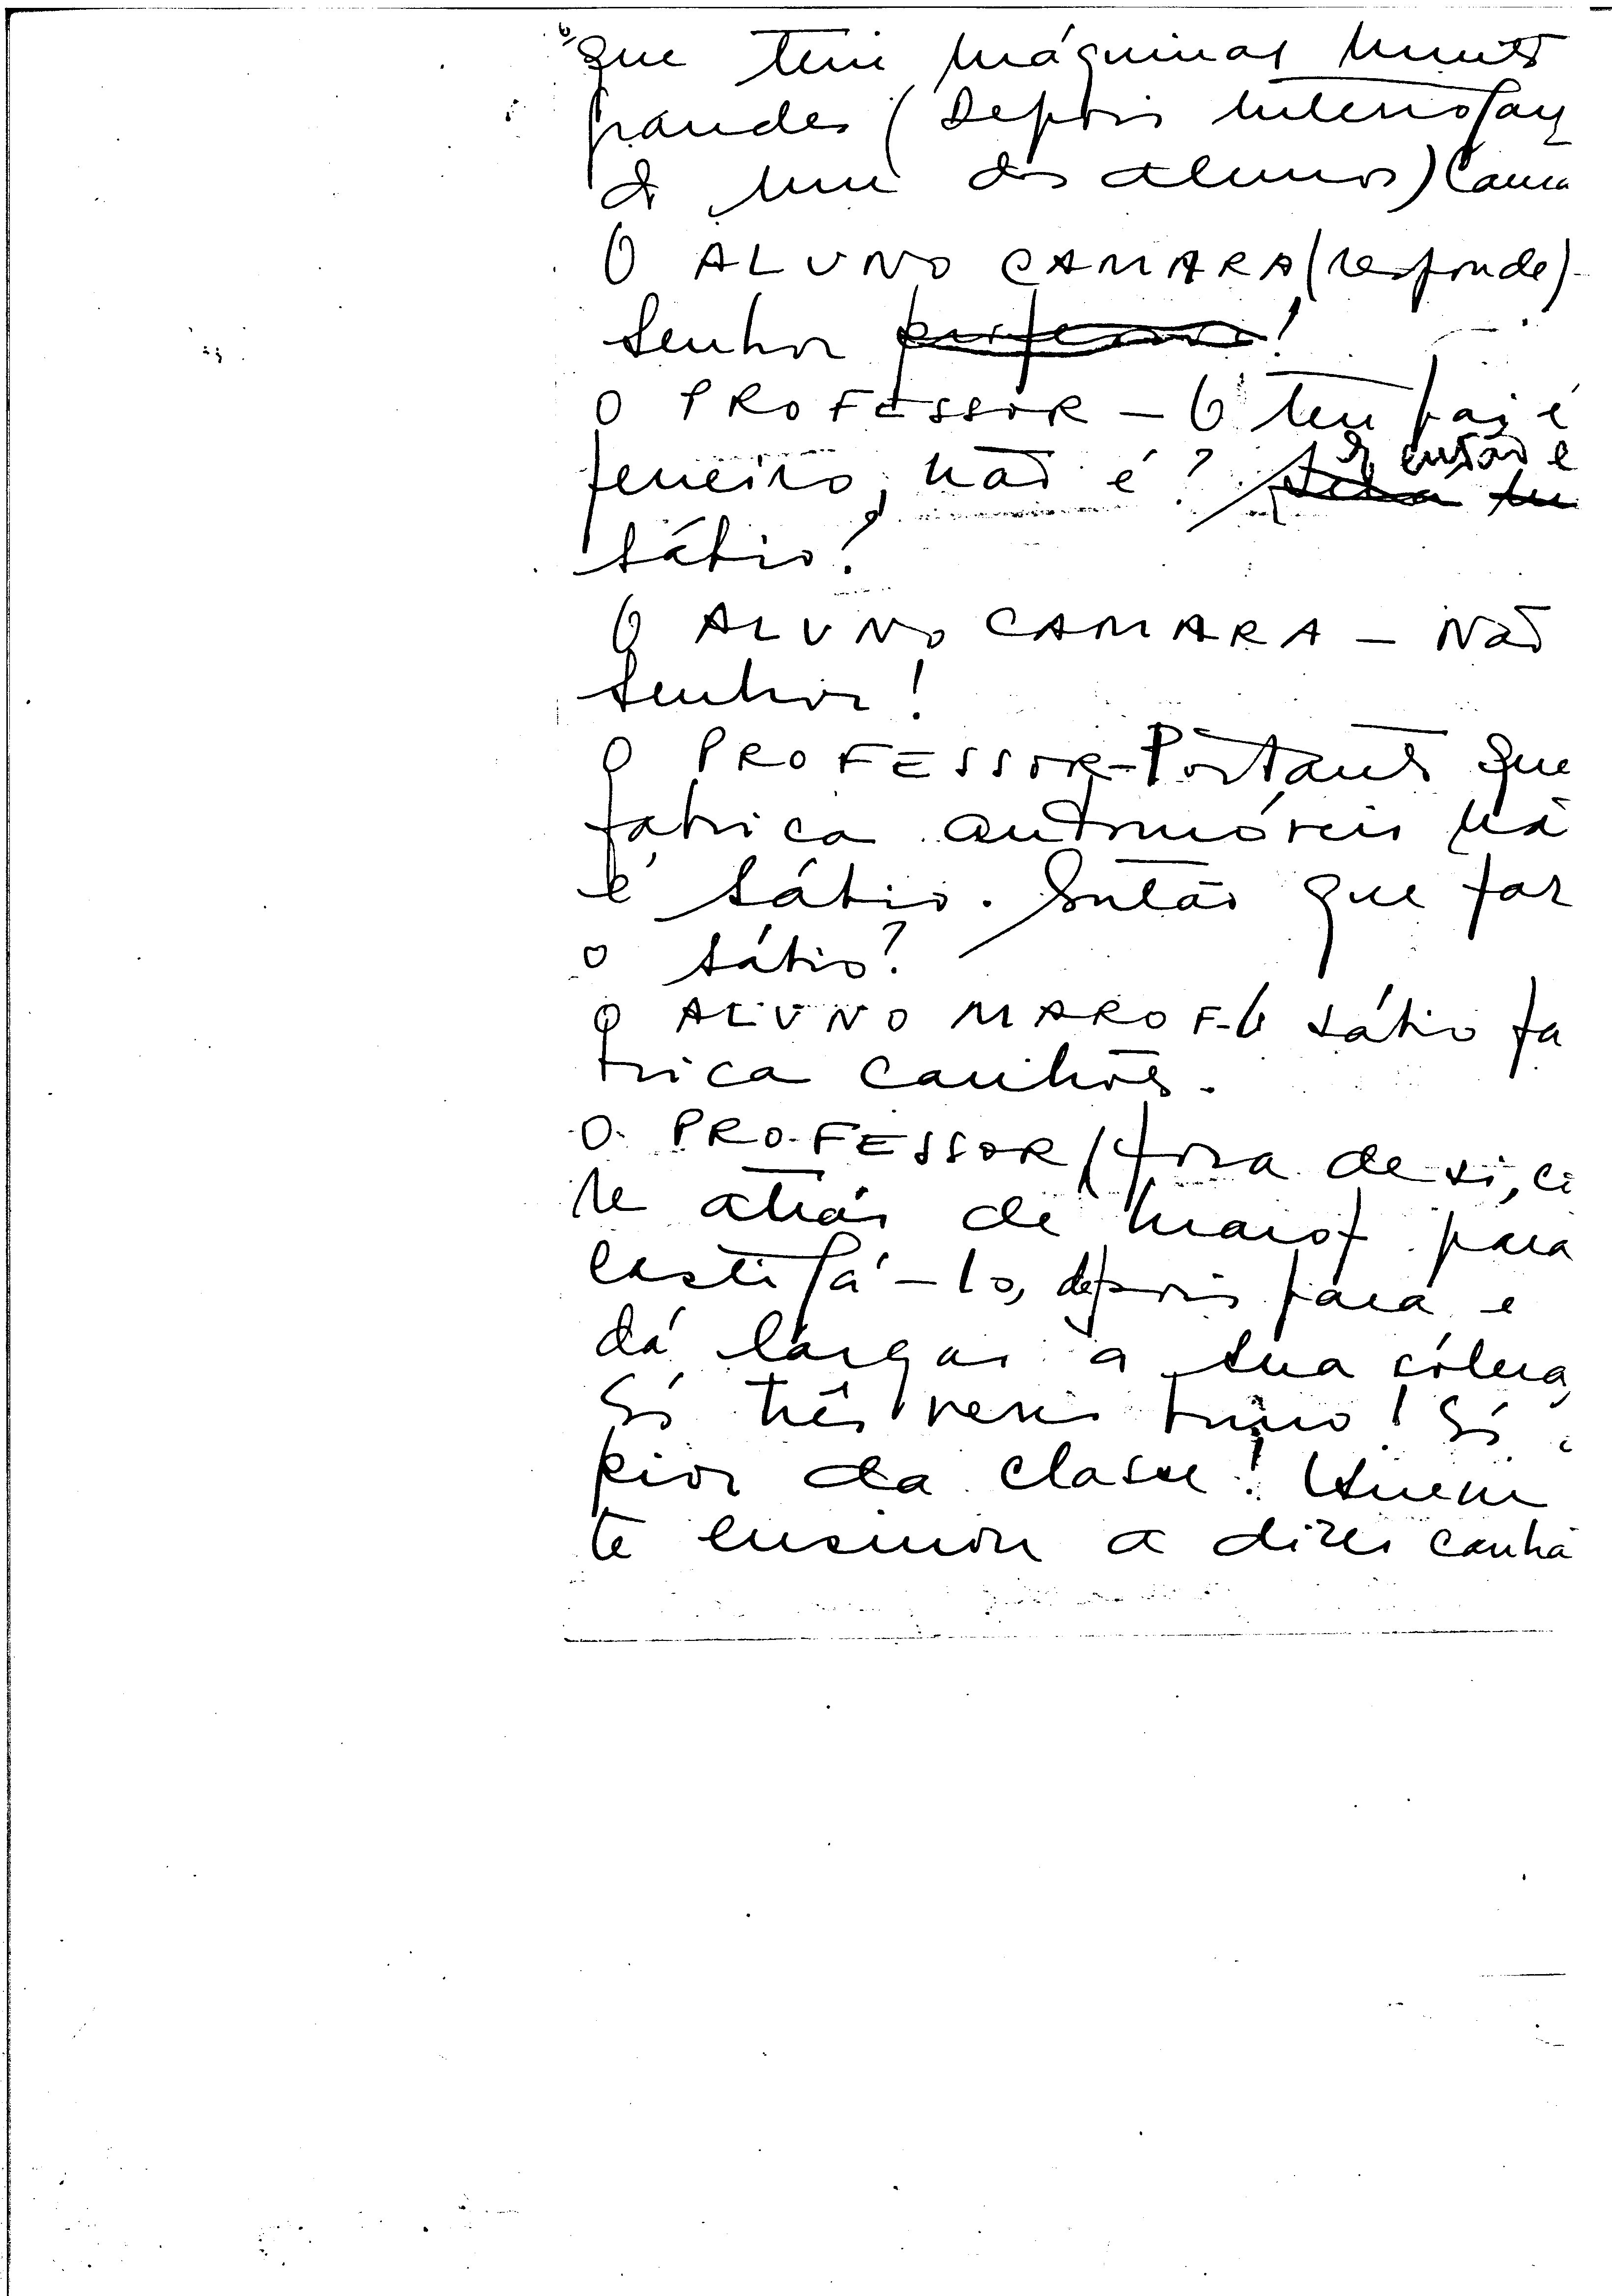 que tem máquinas muito
grandes (Depois interrogan
do um dos alunos) Cama
O ALUNO CAMARA (responde)-
Senhor professor!
O PROFESSOR - O teu pai é
ferreiro, não é? E então é
sábio?
O ALUNO CAMARA - Não
Senhor!
O PROFESSOR - Portanto que
fabrica automóveis nã
é sábio. Então que faz
o sábio?
O ALUNO MAROF - O sábio fa
brica canhões.
O PROFESSOR (fora de si, co
re atrás de Marof para
castigá-lo, depois pára e
dá largas a sua cólera,
Só três vezes burro! És
pior da classe! Quem
te ensinou a dizer canhõ